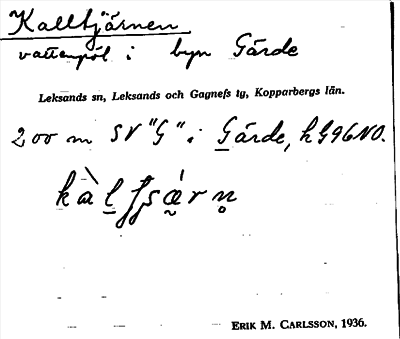 Kalltjärnen
vattenpöl i byn Gärde
Leksands sn, Leksands och Gagnefs tg, Kopparbergs län.
200 m SV "G" i Gärde, k G96NO.
ERIK M. CARLSSON, 1936.